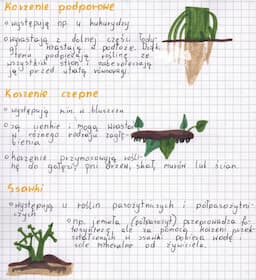 Korzenie podporowe
występują np. u kukurydzy
wyrastają z dolnej części łody-
gi i wrastają w podłoże. Dzięki
temu podpierają roślinę ze
wszystkich stron i zabezpieczają
ją przed utratą równowagi.
Korzenie czepne
występują m.in. u bluszczu
są cienkie i mogą wrastać
w różnego rodzaju zagłę-
bienia.
korzenie przymocowują rośli-
nę do gałęzi, pni drzew, skał, murów lub ścian.
Ssawki
występują u roślin pasożytniczych i półpasożytni-
czych
np. jemioła (półpasożyt) przeprowadza fo-
tosyntezę, ale za pomocą korzeni przek-
ształconych w ssawki pobiera wodę i
sole mineralne od żywiciela.